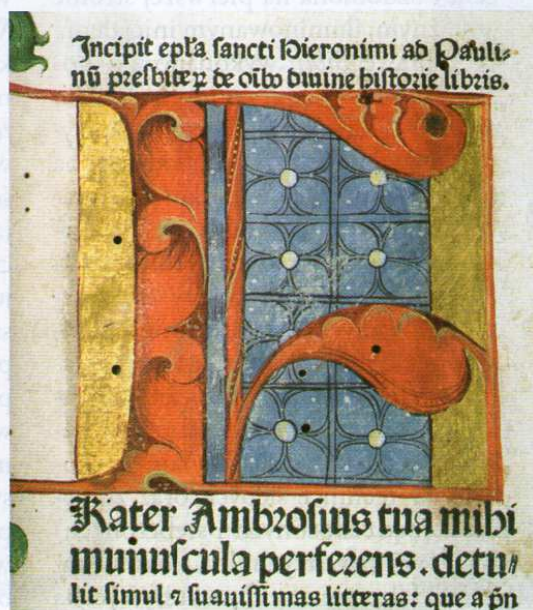 Incipit epła sancti Hieronimi ad Pauli⸗
nū presbiteꝝ de oībꝰ diuine historie libris.
F
Rater Ambrosius tua mihi
munuscula perferens. detu⸗
lit simul ⁊ suauissimas litteras: que a pn̄